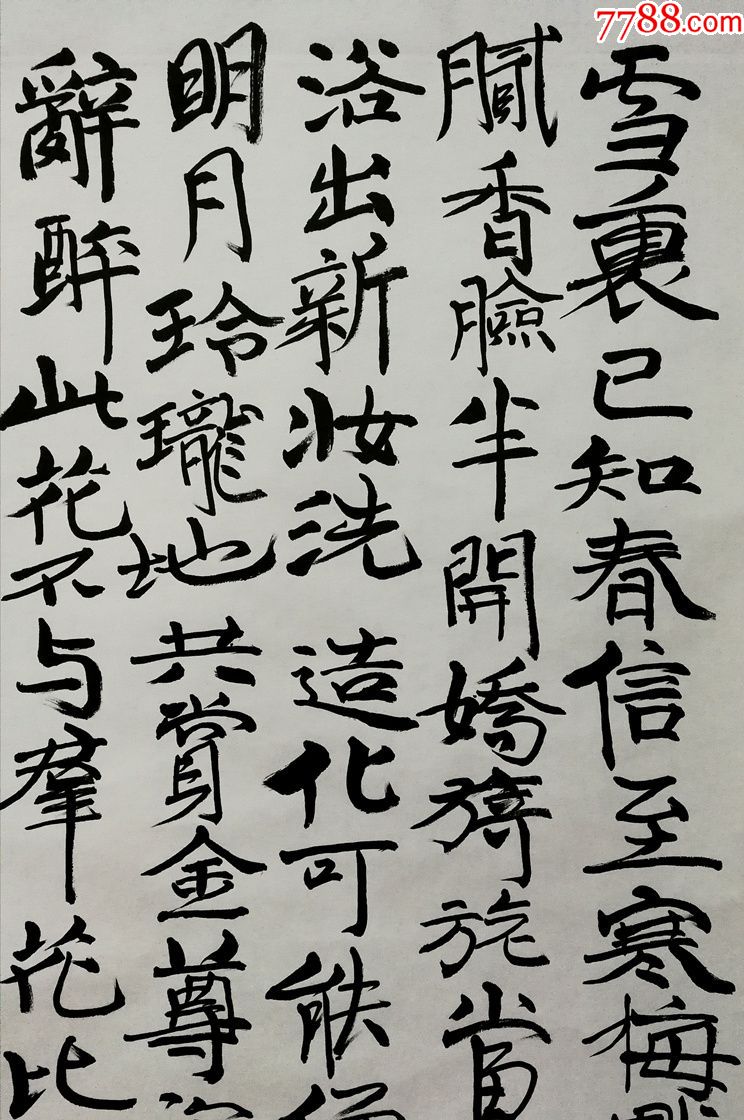 7788.com
雪裏已知春信至寒梅
膩香臉半開嬌旖旎當
浴出新妝洗造化可能
明月玲瓏地共賞金尊
辭醉此花不与羣花比